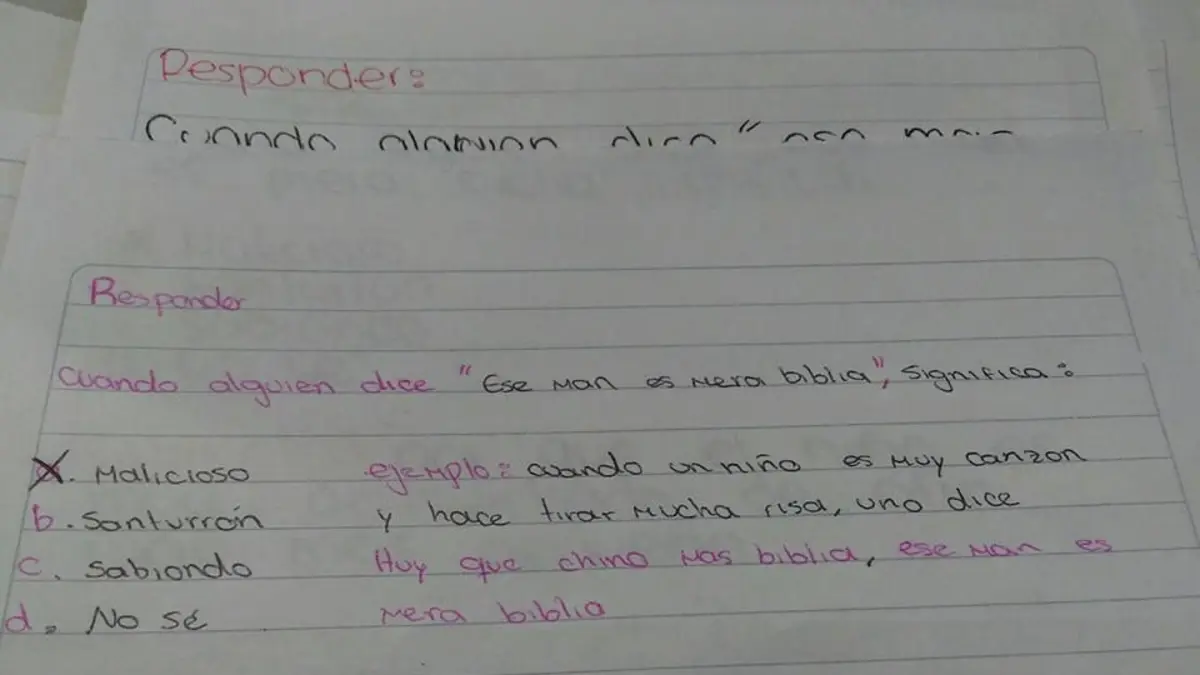 Responder:
Cuando alguien dice "
Responder
Cuando alguien dice "Ese man es mera biblia", significa:
a. Malicioso ejemplo: cuando un niño es muy canzon
b. Santurrón y hace tirar mucha risa, uno dice
c. Sabiondo Huy que chino mas biblia, ese man es
d. No sé mera biblia